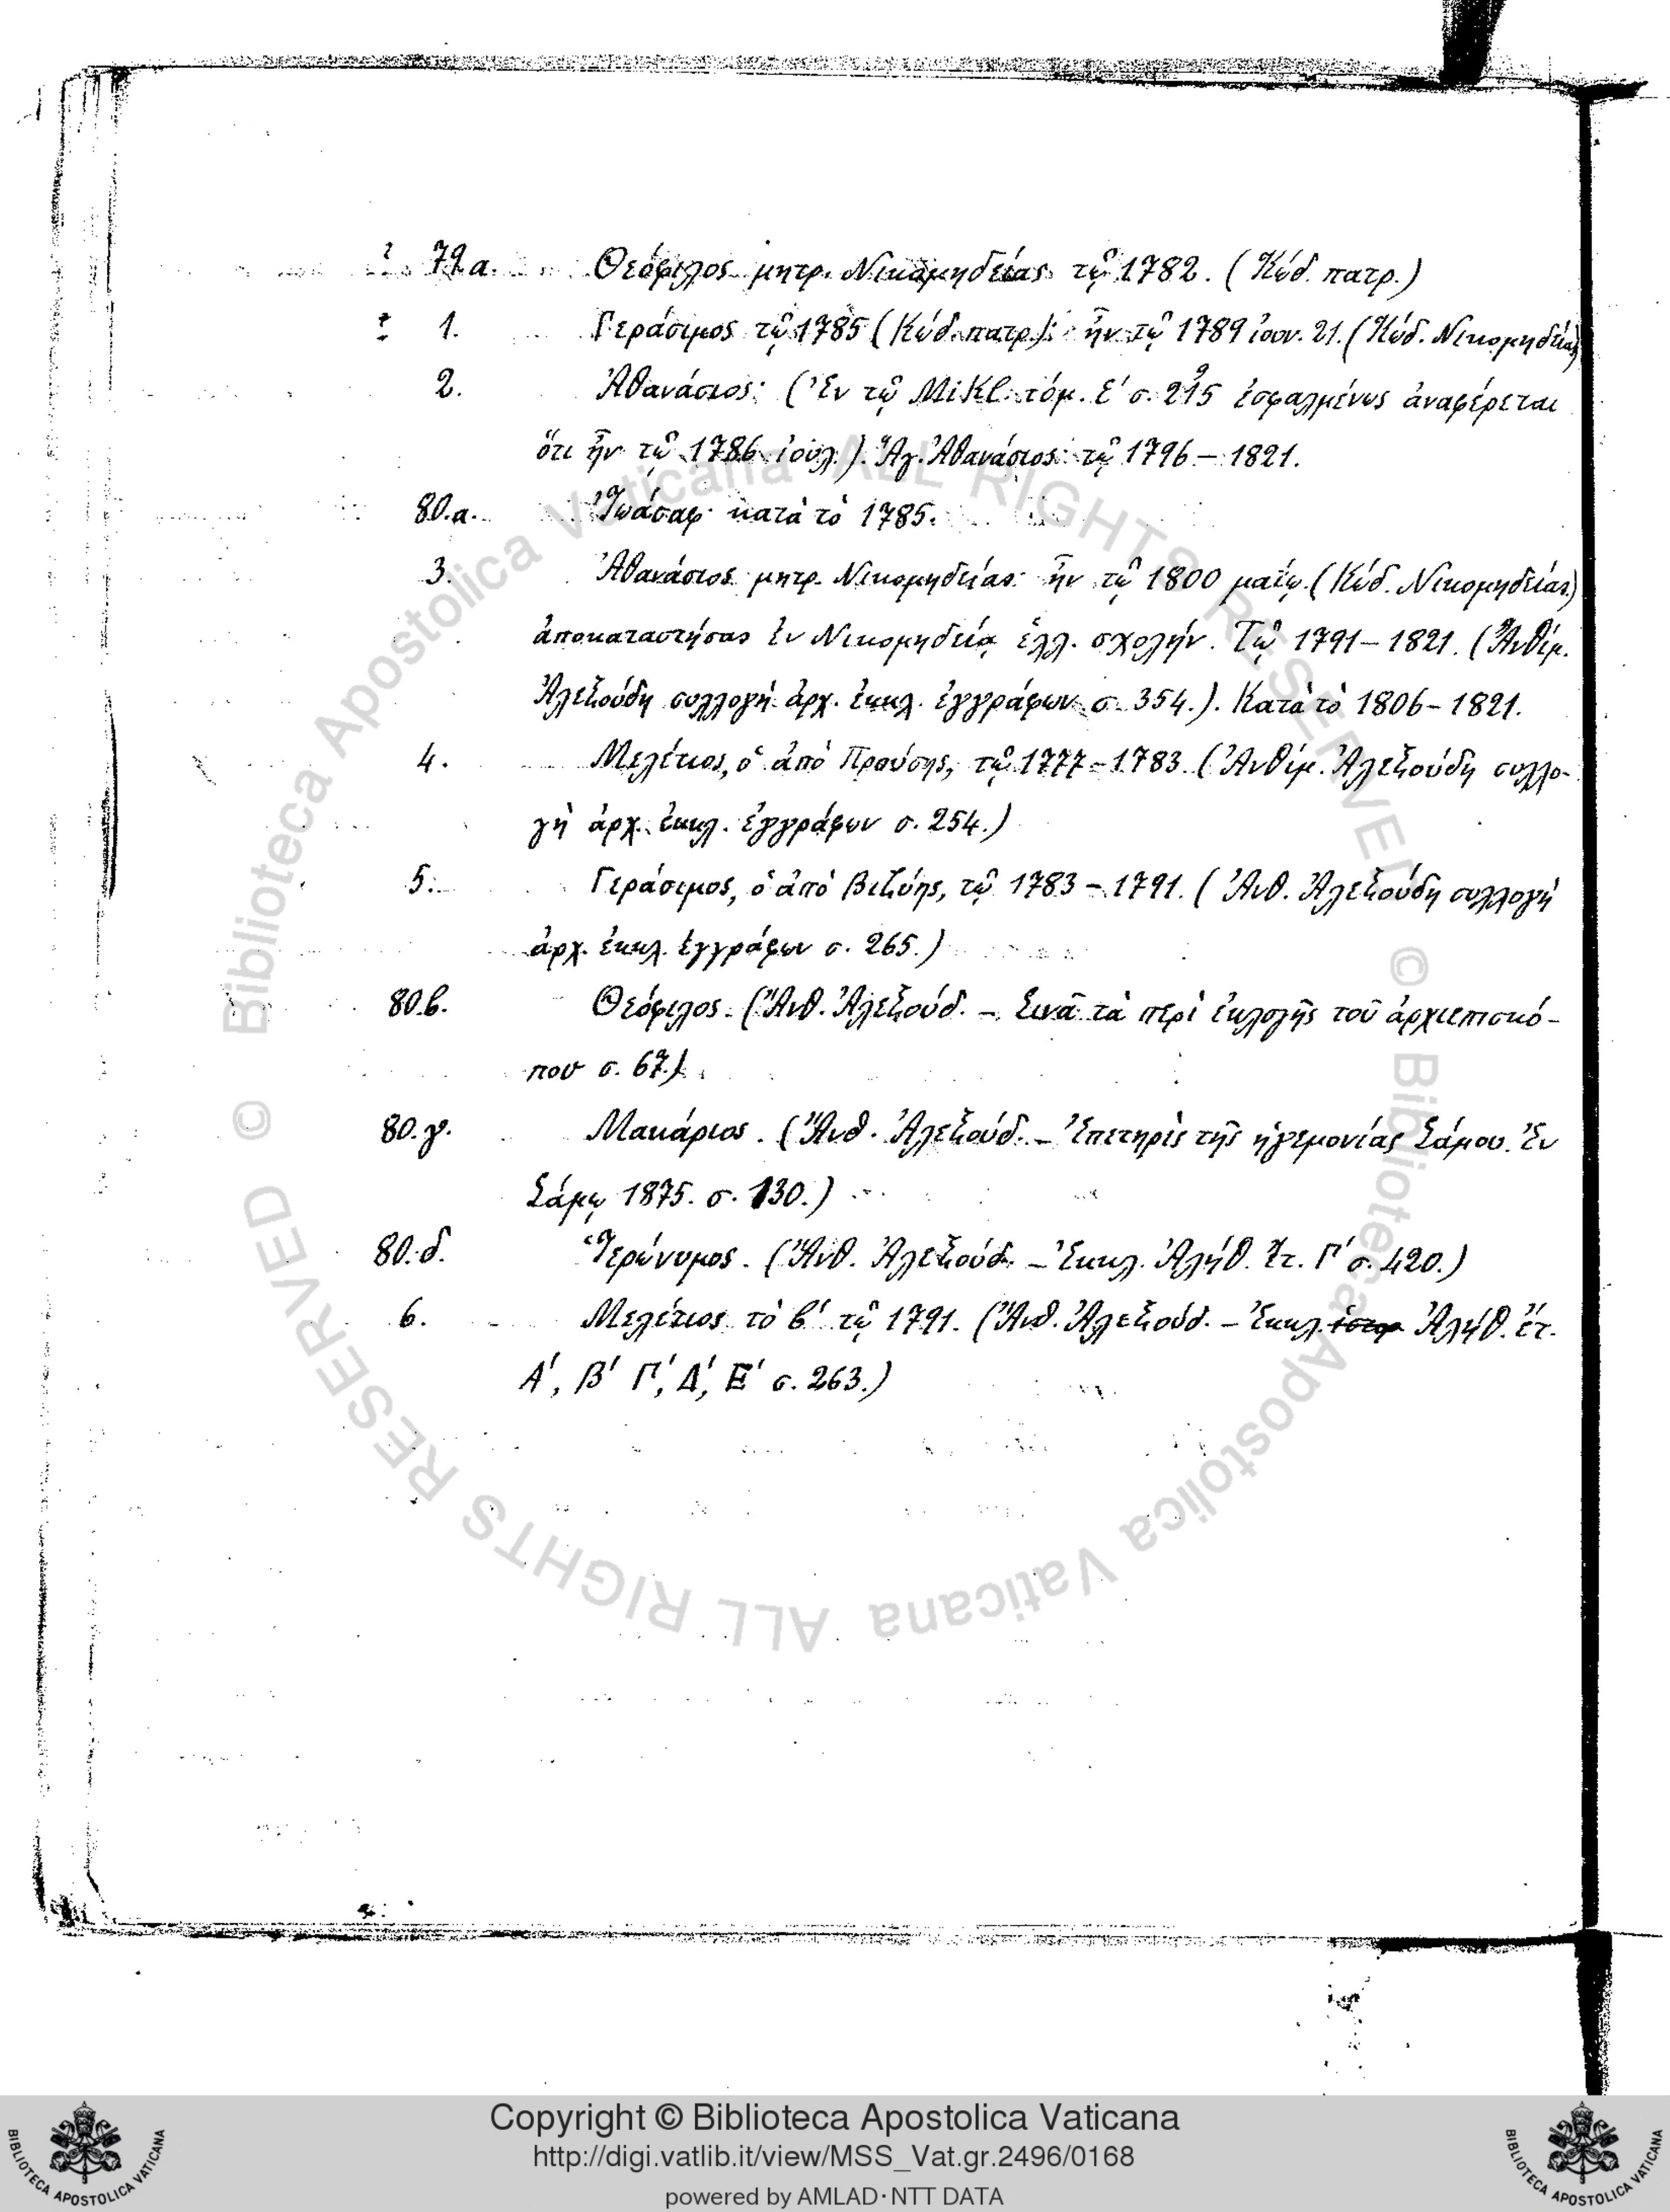 ? 79.α. Θεόφιλος μητρ. Νικομηδείας τῷ 1782. (Κώδ. πατρ.)
? 1. Γεράσιμος τῷ 1785 (Κώδ. πατρ.): ἦν τῷ 1789 ἰαν. 21. (Κώδ. Νικομηδείας)
2. Ἀθανάσιος: (Ἐν τῷ MiKl. τόμ. Ε΄ σ. 215 ἐσφαλμένως ἀναφέρεται
ὅτι ἦν τῷ 1786 ἰουλ.). Ἁγ. Ἀθανάσιος τῷ 1796 – 1821.
80.α. Ἰωάσαφ κατὰ τὸ 1785.
3. Ἀθανάσιος μητρ. Νικομηδείας: ἦν τῷ 1800 μαΐῳ. (Κώδ. Νικομηδείας)
ἀποκαταστήσας ἐν Νικομηδείᾳ ἑλλ. σχολήν. Τῷ 1791 – 1821. (Ἀνθίμ.
Ἀλεξούδη συλλογὴ ἀρχ. ἐκκλ. ἐγγράφων σ. 354.). Κατὰ τὸ 1806 – 1821.
4. Μελέτιος, ὁ ἀπὸ Προύσης, τῷ 1777 – 1783. (Ἀνθίμ. Ἀλεξούδη συλλο-
γὴ ἀρχ. ἐκκλ. ἐγγράφων σ. 254.)
5. Γεράσιμος, ὁ ἀπὸ Βιζύης, τῷ 1783 – 1791. (Ἀνθ. Ἀλεξούδη συλλογὴ
ἀρχ. ἐκκλ. ἐγγράφων σ. 265.)
80.β. Θεόφιλος. (Ἀνθ. Ἀλεξούδ. – Σινᾶ τὰ περὶ ἐκλογῆς τοῦ ἀρχιεπισκό-
που σ. 67.)
80.γ. Μακάριος. (Ἀνθ. Ἀλεξούδ. – Ἐπετηρὶς τῆς ἡγεμονίας Σάμου. Ἐν
Σάμῳ 1875. σ. 130.)
80.δ. Ἱερώνυμος. (Ἀνθ. Ἀλεξούδ. – Ἐκκλ. Ἀλήθ. ἔτ. Γ΄ σ. 420.)
6. Μελέτιος τὸ β΄ τῷ 1791. (Ἀνθ. Ἀλεξούδ. – Ἐκκλ. Ἀλήθ. ἔτ.
Α΄, Β΄ Γ΄, Δ΄, Ε΄ σ. 263.)
© Biblioteca Apostolica Vaticana ALL RIGHTS RESERVED
© Biblioteca Apostolica Vaticana ALL RIGHTS RESERVED
Copyright © Biblioteca Apostolica Vaticana
http://digi.vatlib.it/view/MSS_Vat.gr.2496/0168
powered by AMLAD·NTT DATA
BIBLIOTECA APOSTOLICA VATICANA
BIBLIOTECA APOSTOLICA VATICANA